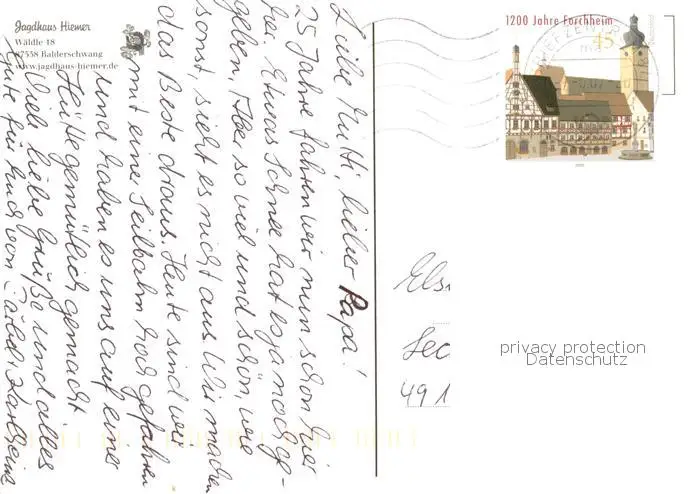 Jagdhaus Hiemer
Wäldle 18
87538 Balderschwang
www.jagdhaus-hiemer.de
Liebe Mutti, lieber Papa!
25 Jahre fahren wir nun schon hier
her. Etwas Schnee hat es ja noch ge-
geben, aber so viel und schön, wie
sonst, sieht es nicht aus. Wir machen
das Beste draus. Heute sind wir
mit einer Seilbahn hochgefahren
und haben es uns auf einer
Hütte gemütlich gemacht
Viele liebe Grüße und alles
Gute für Euch von
1200 Jahre Forchheim
45
Els
49 1
privacy protection
Datenschutz